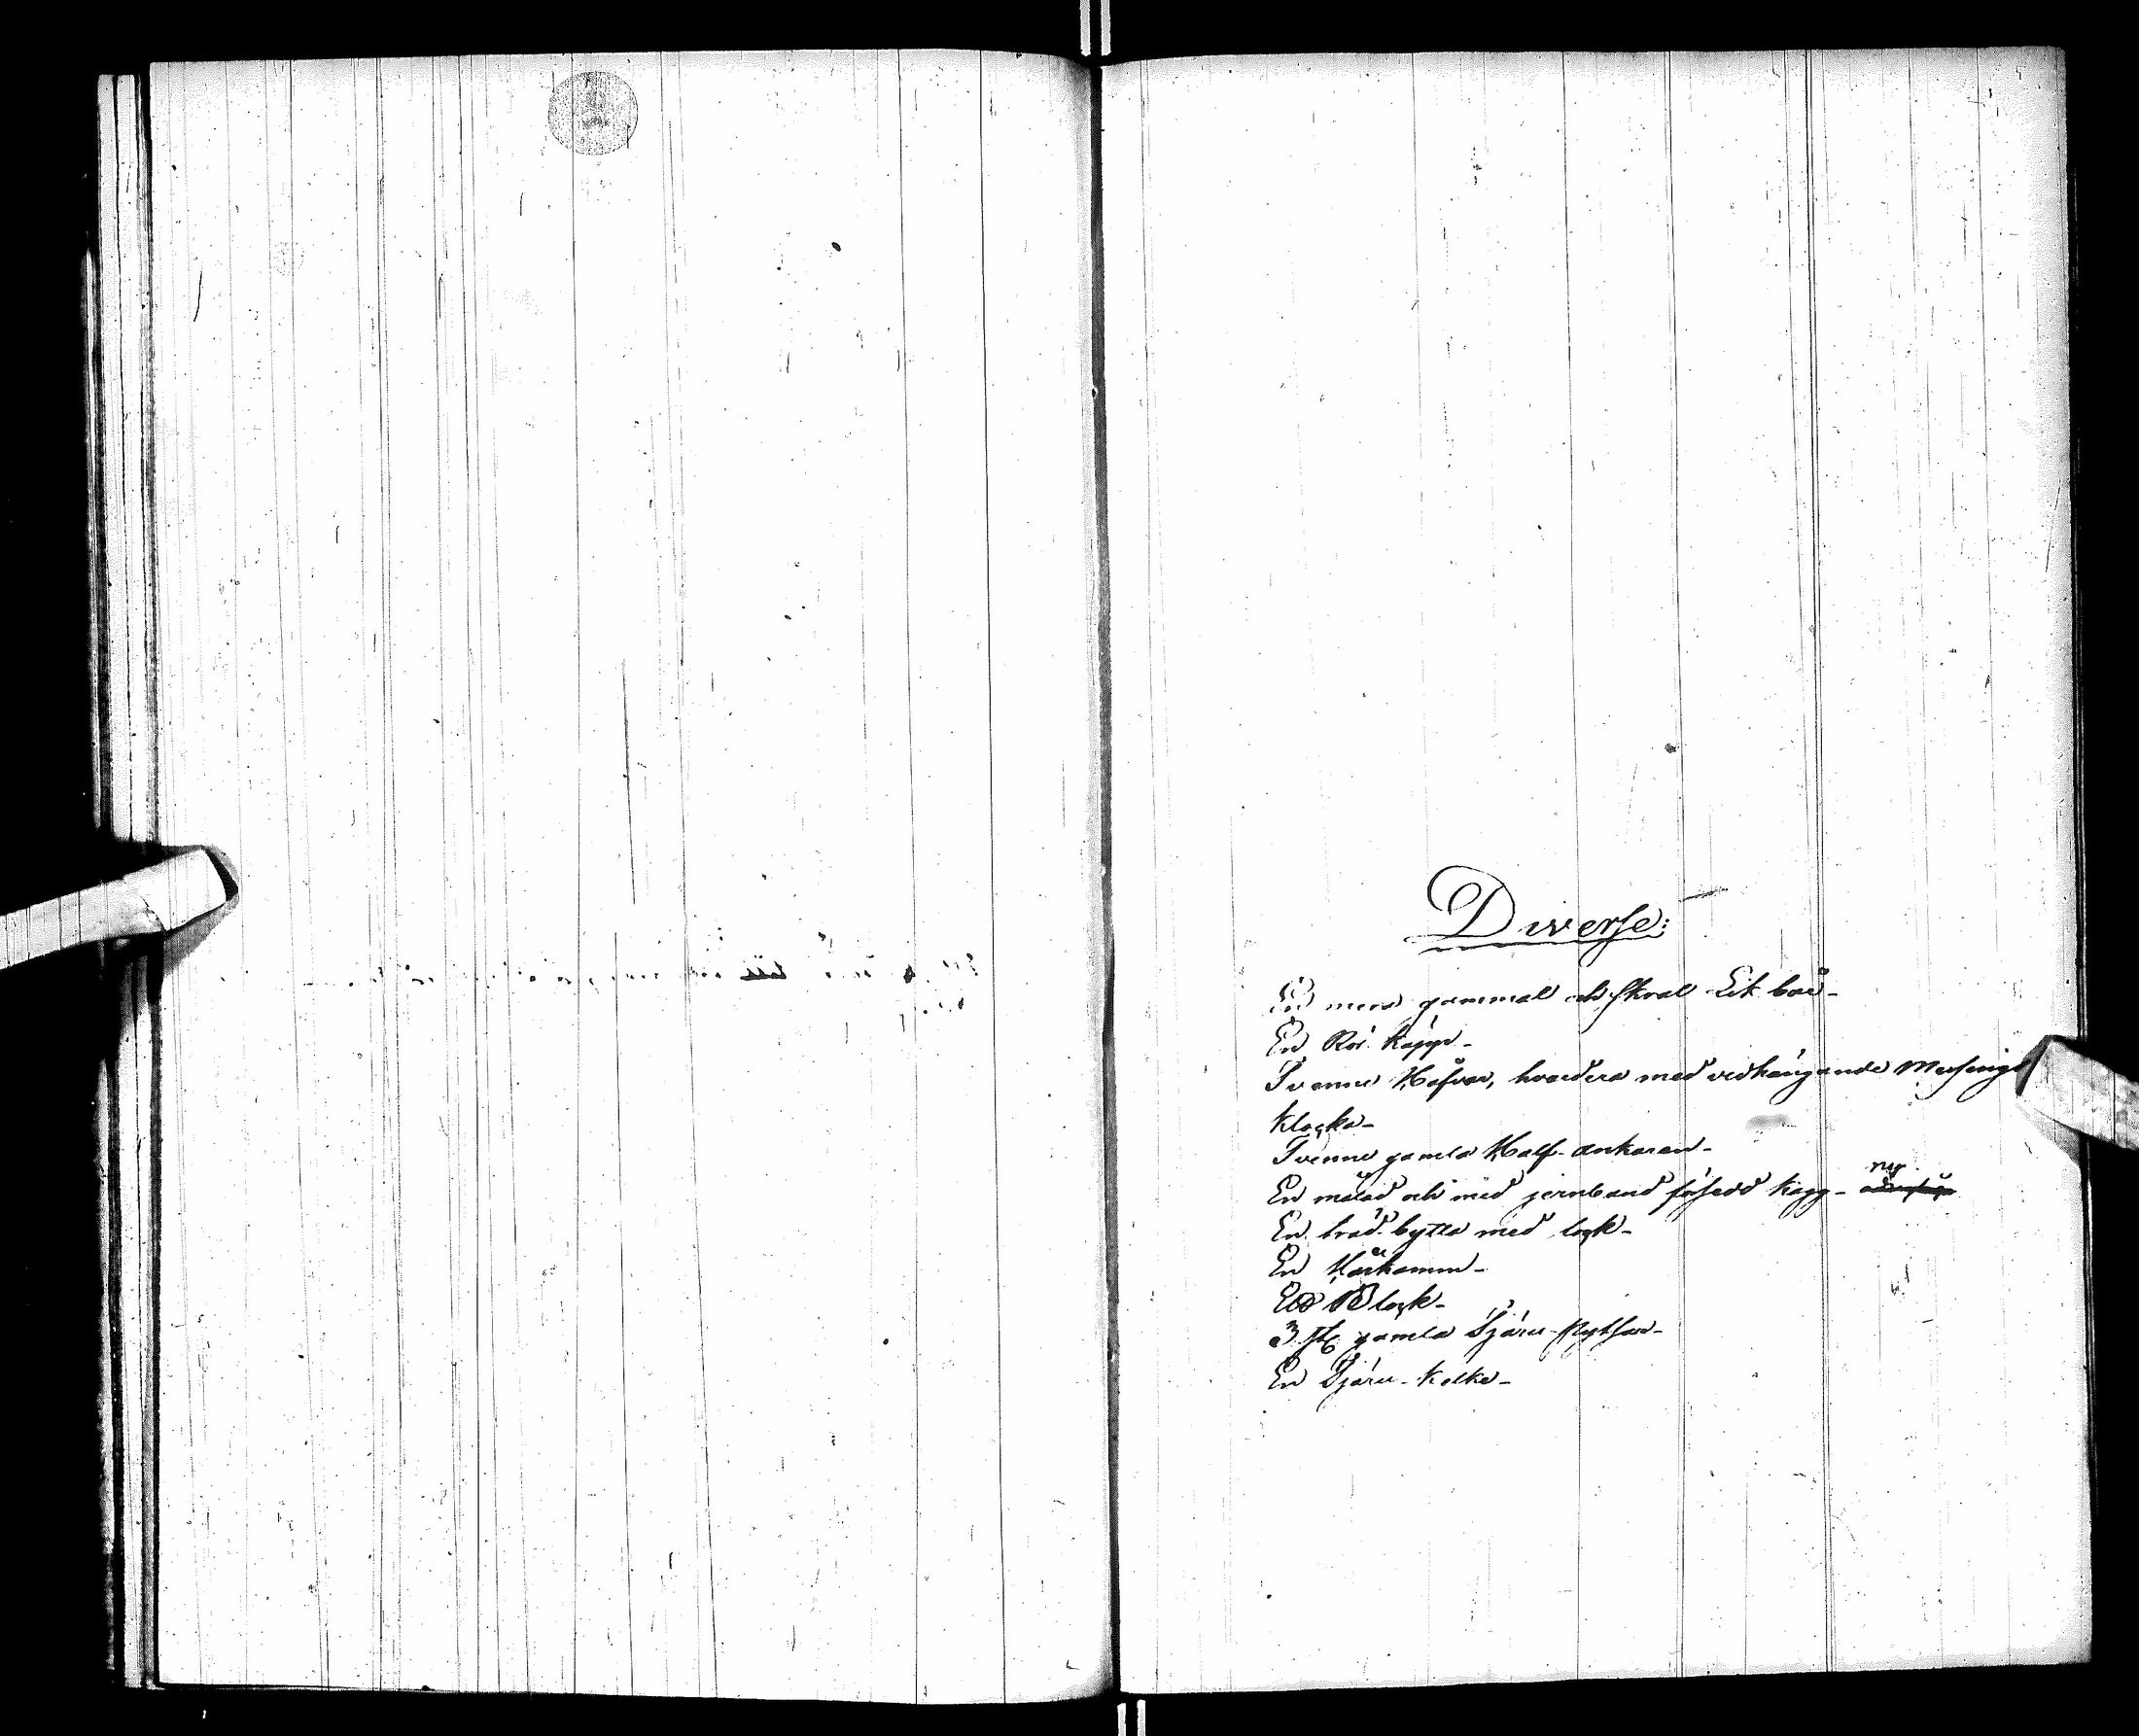 Diverse:
En mera gammal och skral Lik bår-
En Rör. käpp-
Tvenne Håfvar, hvardera med vedhängande Messings
klocka-
Tvenne gamla Half-ankaren-
En målad och med jernband försedd kagg- ny
En träd-bytta med lock-
En Hårkamm-
Block-
3 st. gamla Tjäru-byttor-
En Tjäru-kälke-